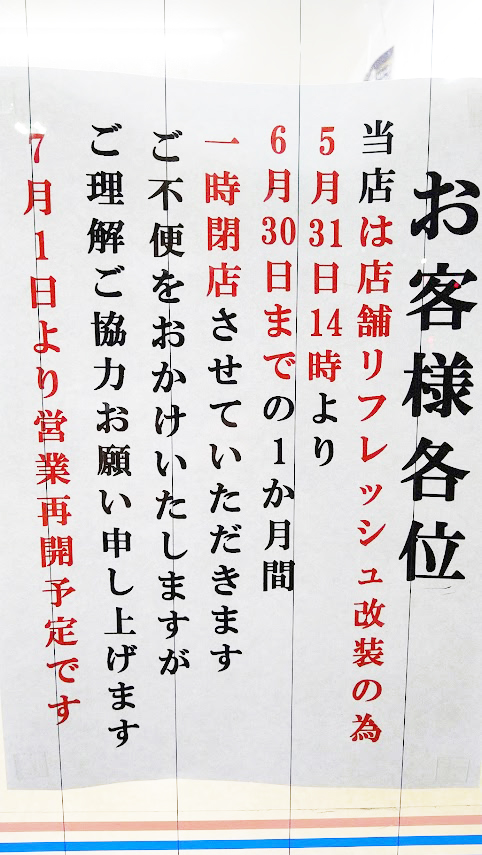 お客様各位
当店は店舗リフレッシュ改装の為
5月31日14時より
6月30日までの1か月間
一時閉店させていただきます
ご不便をおかけいたしますが
ご理解ご協力お願い申し上げます
7月1日より営業再開予定です